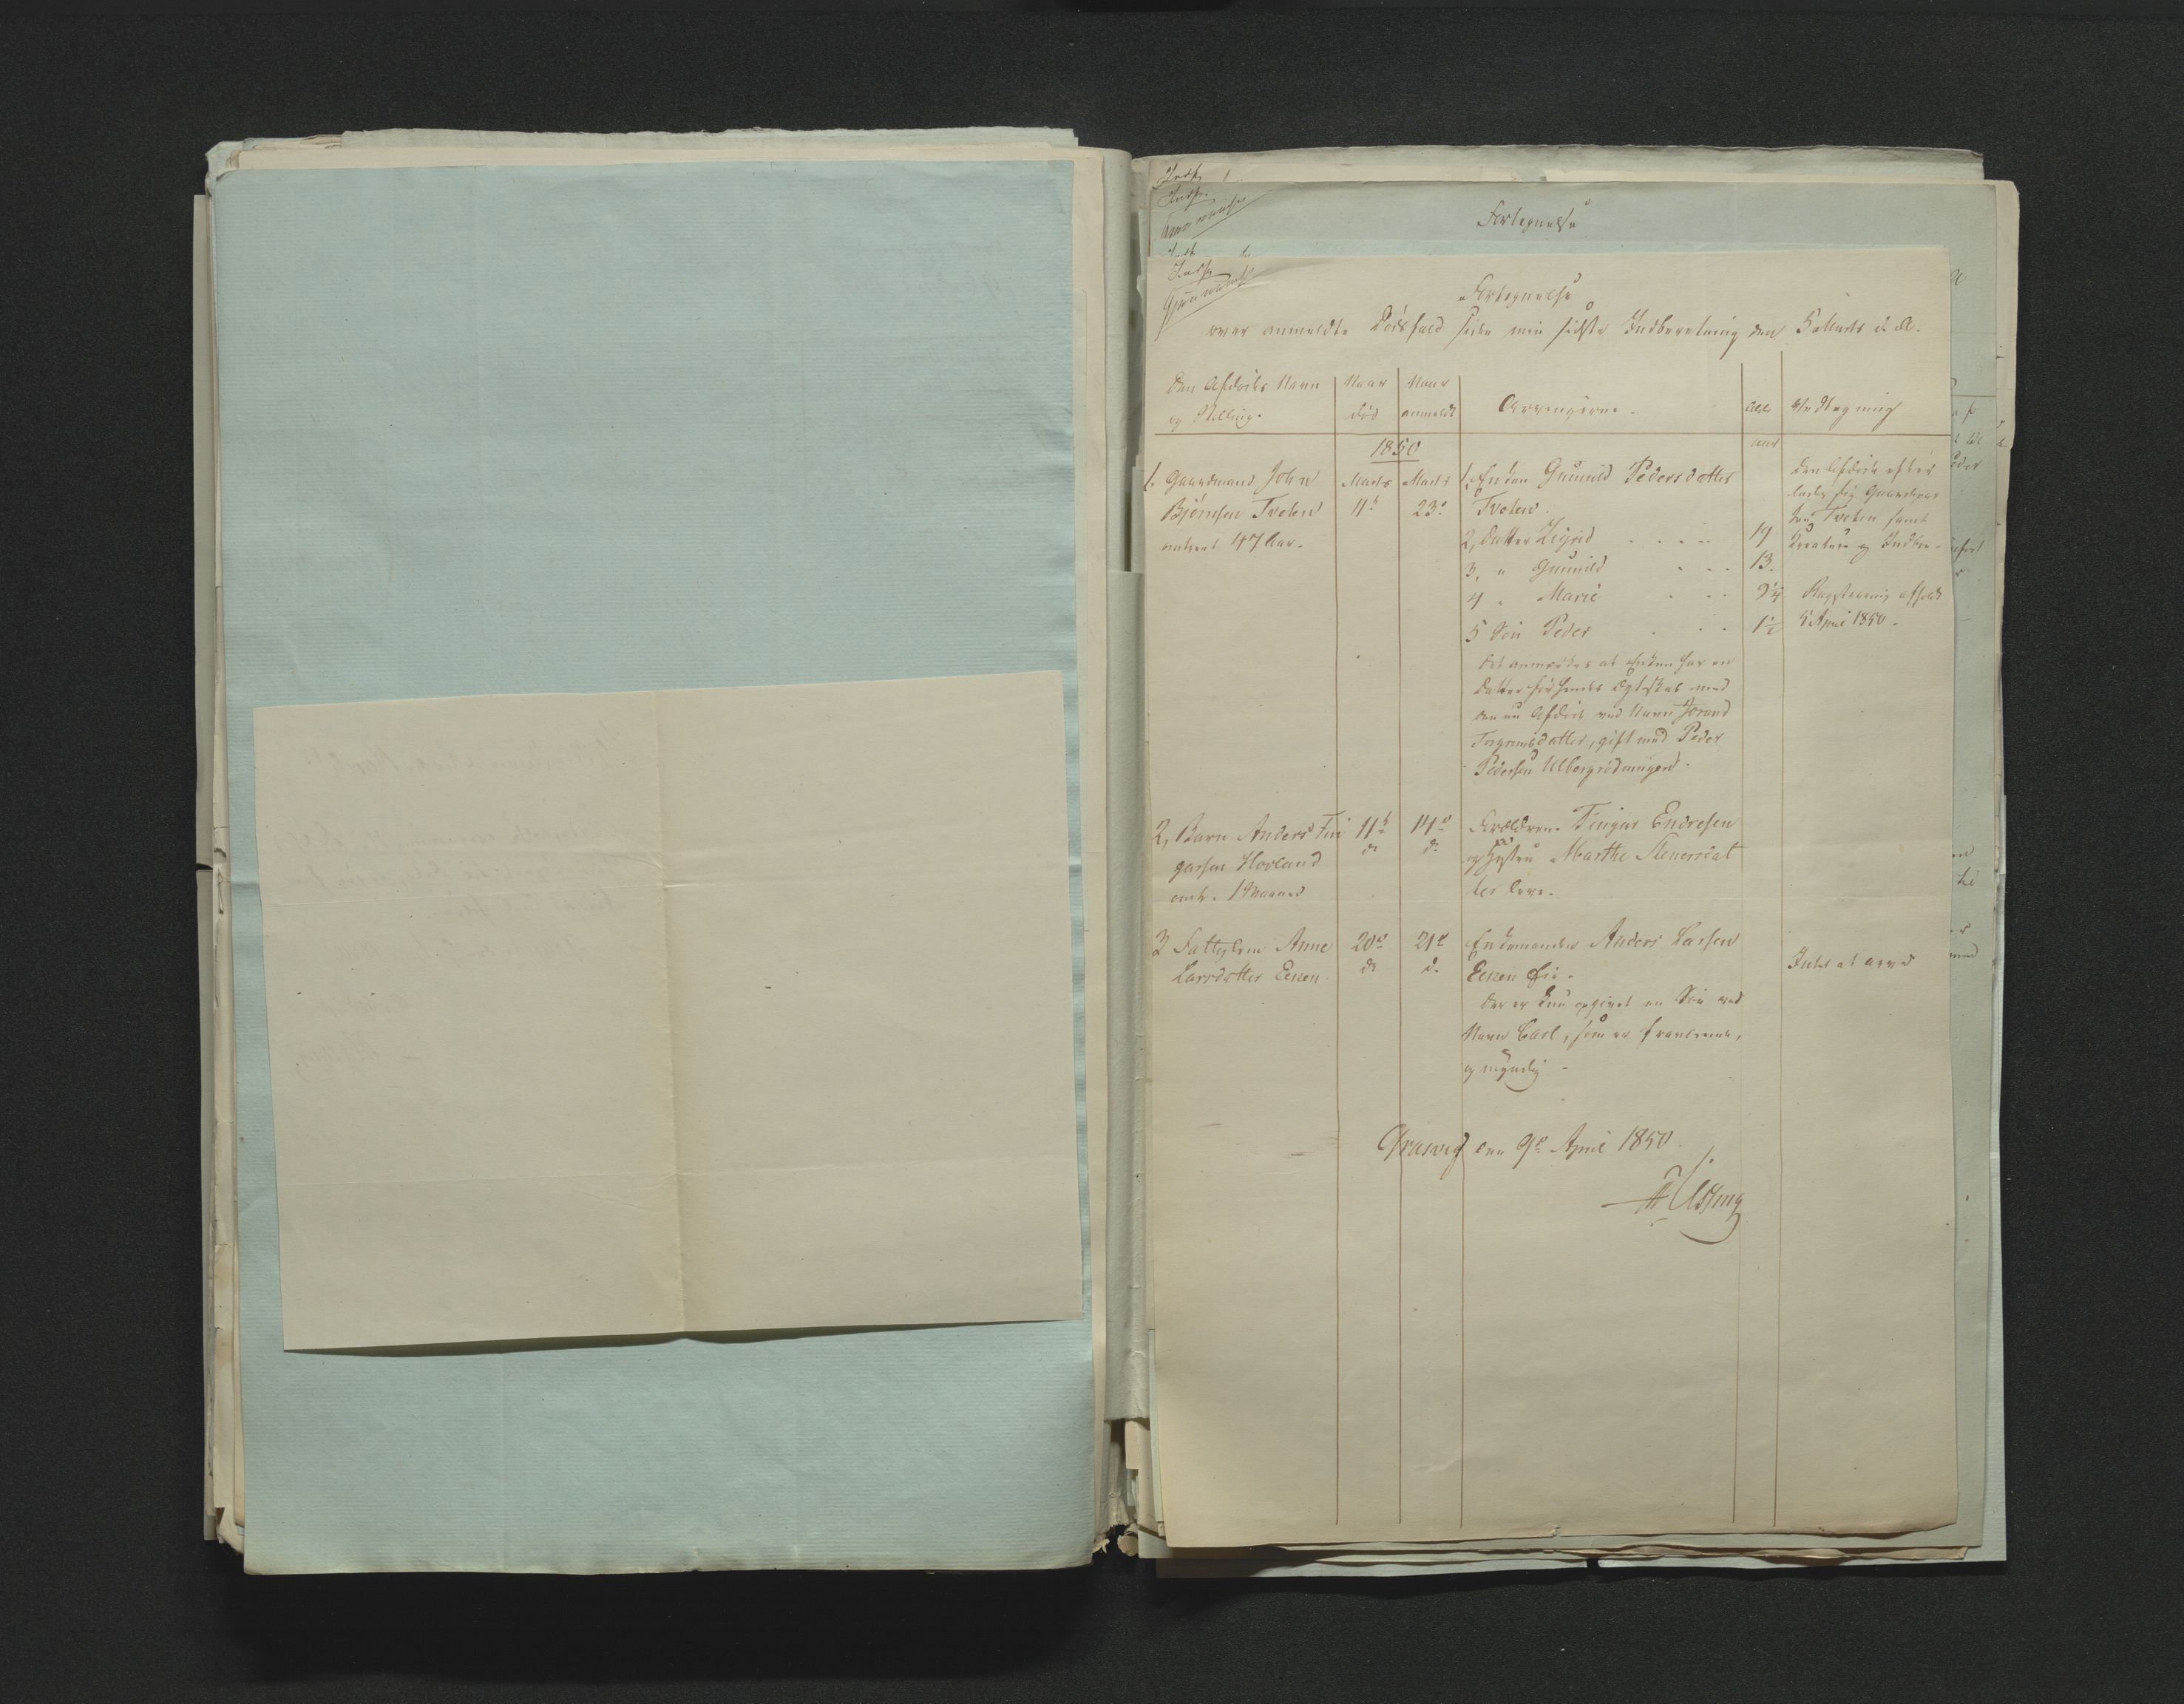 Fortegnelse
Fortegnelse
over anmeldte Dödsfald siden min sidste Indberetning den 5 Marts d. A.
Den Afdödes Navn
og Stilling.
Naar
död
Naar
anmeldt
Arvingerne.
Alder
Aar
1850
1. Gaardmand John
Björnsen Tveten
omtrent 47 Aar.
Marts
11te
Marts
23de
1. Enken Gunnild Pedersdatter
Tveten.
2, Datter Sigrid 19
3, " Gunnild 13.
4 " Marie 9¼
5 Sön Peder 1½
Det anmærkes at Enken har en
Datter för hendes Ægteskab med
den nu Afdöde ved Navn Jorand
Torgrimsdatter, gift med Peder
Pedersen
Den Afdöde efter
lader sig Gaardpar
ten Tveten samt
Creature og Indboe.
Registrering afholdt
5 April 1850.
2, Barn Anders Tin
garsen Hovland
omtr. 1 Maaned
11te
do
14de
do
Forældrene Tingar Endresen
og Hustru Marthe Stenersdat
ter leve.
3 Fattiglem Anne
Larsdatter Eenen
20de
do
21de
do
Enkemanden Anders Larsen
Eenen Eie.
Der er kun opgivet en Sön ved
Navn Carl, som er fraværende,
og myndig
Intet at arve
den 9de April 1850.